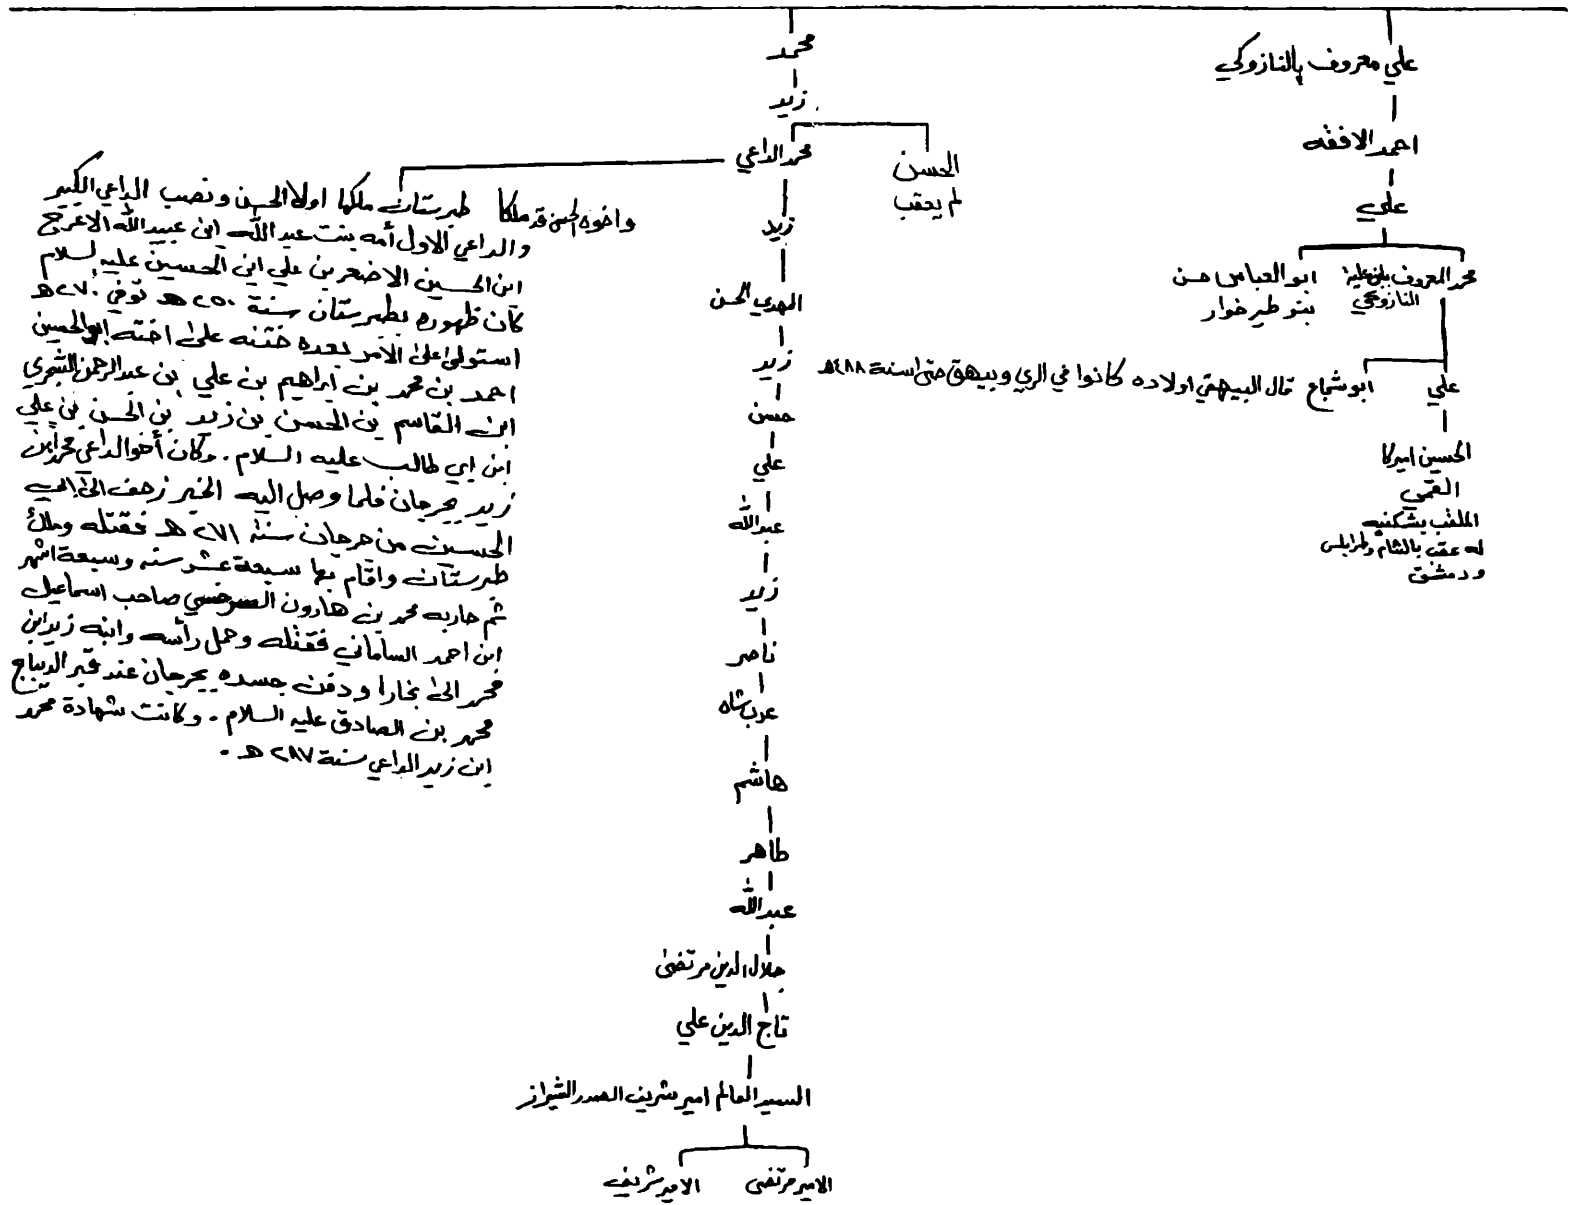 علي معروف بالنازوكي
احمد الافقه
علي
محمد المعروف بابن علية
النازوكي
ابو العباس حسن
بنو طير خوار
علي
ابو شجاع قال البيهقي اولاده كانوا في الري وبيهق حتى سنة ٤٨٨هـ
الحسين اميركا
القمي
الملقب بشكنبه
له عقب بالشام وطرابلس
ودمشق
محمد
زيد
الحسن
لم يعقب
محمد الداعي
زيد
المهدي الحسن
زيد
حسن
علي
عبد الله
زيد
ناصر
عرب شاه
هاشم
طاهر
عبد الله
جلال الدين مرتضى
تاج الدين علي
السيد العالم امير شريف الصدر الشيراز
الامير مرتضى
الامير شريف
واخوه الحسن قد ملكا طبرستان ملكها اولا الحسن ونصب الداعي الكبير
والداعي الاول أمه بنت عبد الله ابن عبيد الله الاعرج
ابن الحسين الاصغر بن علي ابن الحسين عليه السلام
كان ظهوره بطبرستان سنة ٢٥٠ هـ توفي ٢٧٠ هـ
استولى على الأمر بعده ختنه على اخته ابو الحسين
احمد بن محمد بن ابراهيم بن علي بن عبد الرحمن الشجري
ابن القاسم بن الحسن بن زيد بن الحسن بن علي
ابن ابي طالب عليه السلام . وكان أخو الداعي محمد ابن
زيد بجرجان فلما وصل اليه الخبر زحف الى ابي
الحسين من جرجان سنة ٢٧١ هـ فقتله وملك
طبرستان واقام بها سبعة عشر سنة وسبعة اشهر
ثم حاربه محمد بن هارون السرخسي صاحب اسماعيل
ابن احمد الساماني فقتله وحمل رأسه وابنه زيد ابن
محمد الى بخارا ودفن جسده بجرجان عند قبر الديباج
محمد بن الصادق عليه السلام . وكانت شهادة محمد
ابن زيد الداعي سنة ٢٨٧ هـ .